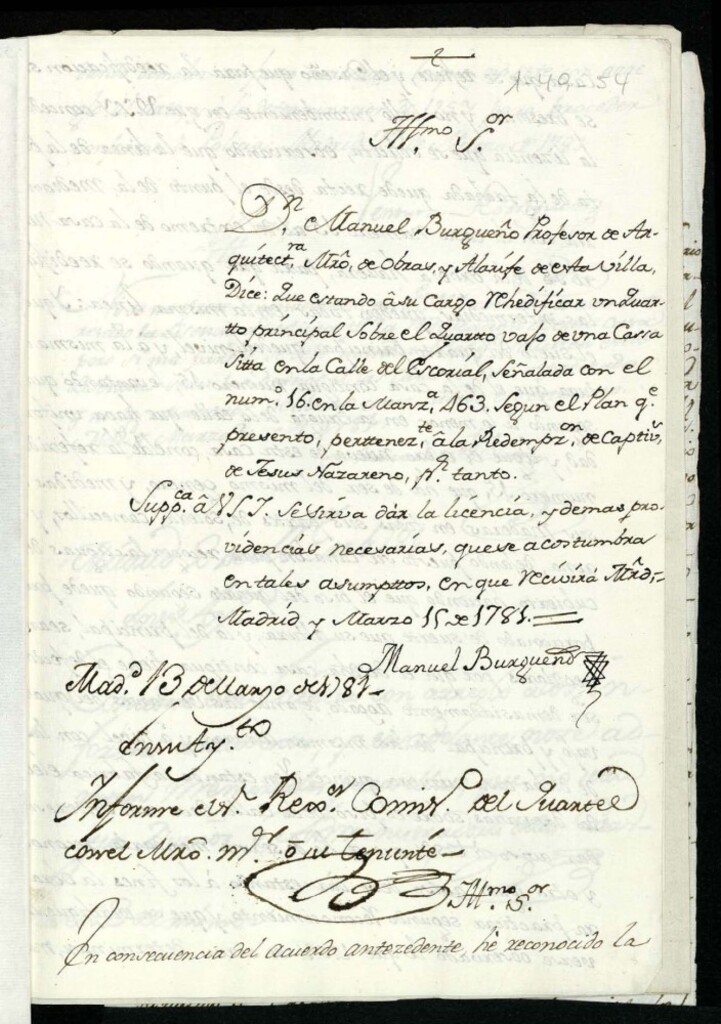 1-49-54
Yllmo. Sor.
Dn. Manuel Burgueño Profesor de Ar-
quitectra. Mrô. de obras, y Alarife de esta Villa,
Dice: Que estando â su Cargo Rehedificar un Quar-
tto príncipal sobre el Quartto vajo de vna Cassa
sitta en la Calle del Escoríal, señalada con el
num.o 16. en la Manza. 463. segun el Plan q.e
presento, perttenez.te â la Redempz.on de Captivs.
de Jesus Nazareno, pr. tanto.
Supp.ca â V S I. se sirva dár la licencia, y demas pro-
videncías necesarías, que se acostumbra
en tales asumpttos, en que Recivirá Mrd.
Madríd y Marzo 15 de 1781.
Manuel Burgueño
Mad.d 13 de Marzo de 1781
En su Ay.to
Informe el Sr. Rexor. Comis.o del Quartel
con el Mrô. mr. ô su Tenientê
Yllmo. Sor.
En consecuencia del Acuerdo antezedente, hê reconocido la